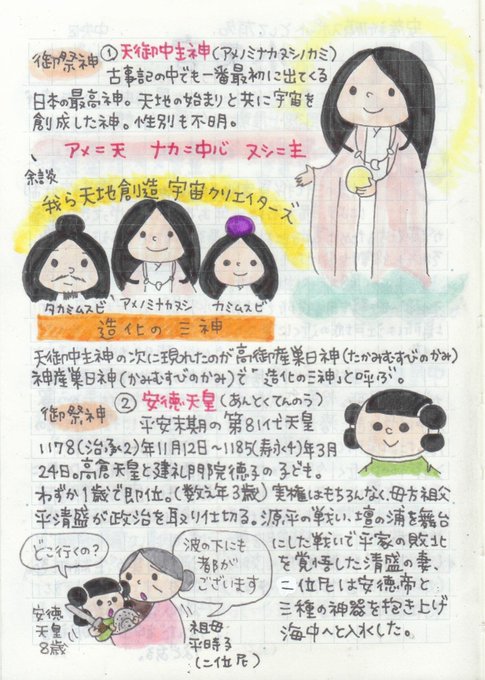 御祭神 ① 天御中主神(アメノミナカヌシノカミ)
古事記の中でも一番最初に出てくる
日本の最高神。天地の始まりと共に宇宙を
創成した神。性別も不明。
アメ=天 ナカ=中心 ヌシ=主
余談
我ら天地創造 宇宙クリエイターズ
タカミムスビ アメノミナカヌシ カミムスビ
造化の三神
天御中主神の次に現れたのが高御産巣日神(たかみむすびのかみ)
神産巣日神(かみむすびのかみ)で「造化の三神」と呼ぶ。
御祭神 ② 安徳天皇(あんとくてんのう)
平安末期の第81代天皇
1178(治承2)年11月12日〜1185(寿永4)年3月
24日。高倉天皇と建礼門院徳子の子ども。
わずか1歳で即位。(数え年3歳)実権はもちろんなく、母方祖父
平清盛が政治を取り仕切る。源平の戦い、壇の浦を舞台
にした戦いで平家の敗北
を覚悟した清盛の妻、
二位尼は安徳帝と
三種の神器を抱き上げ
海中へと入水した。
どこ行くの?
波の下にも
都が
ございます
安徳
天皇
8歳
祖母
平時子
(二位尼)